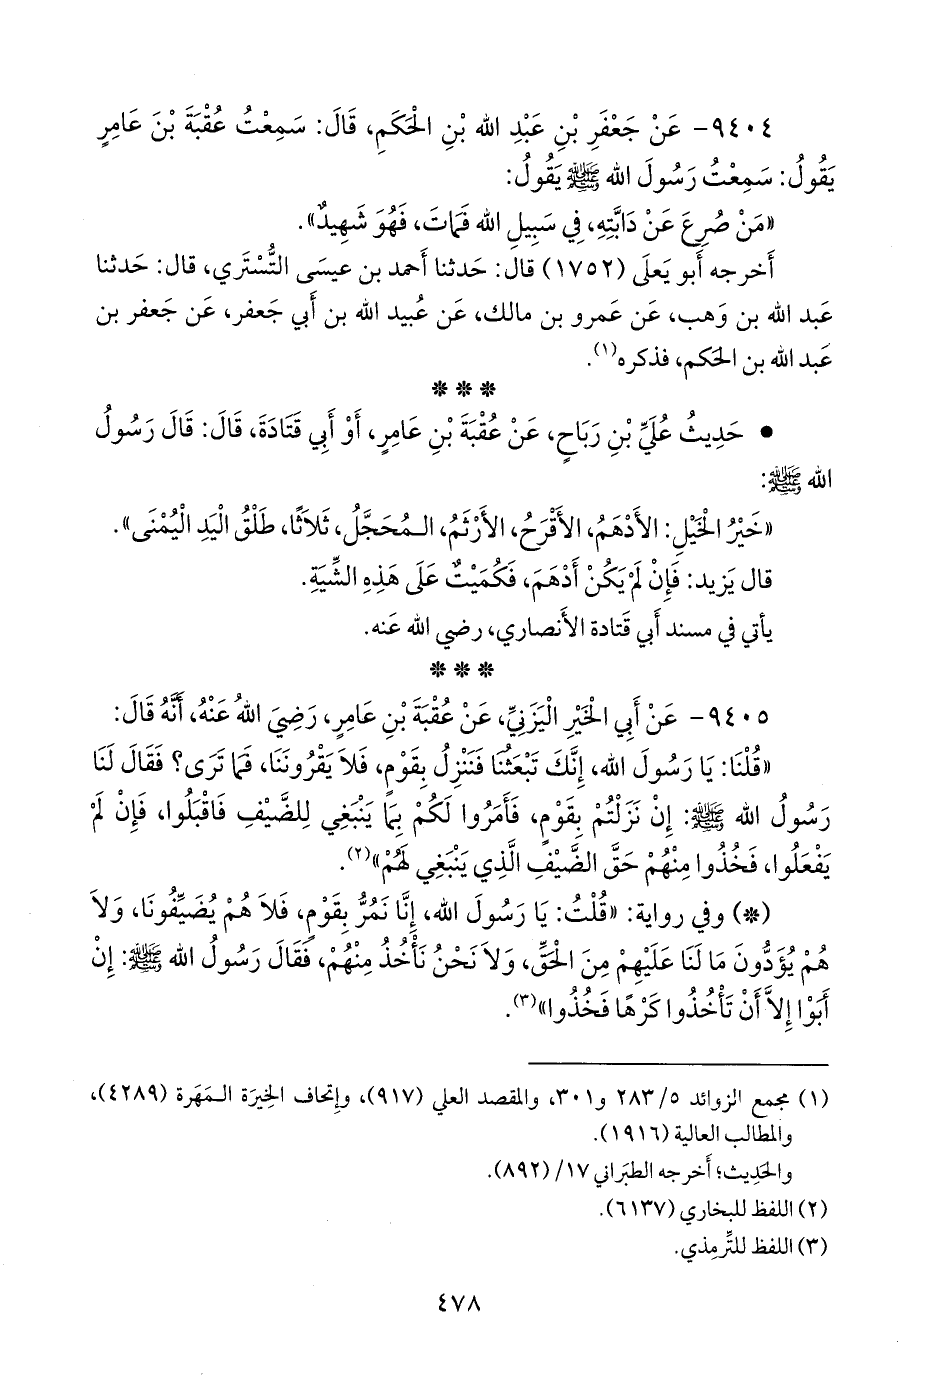 ٩٤٠٤- عَنْ جَعْفَرِ بْنِ عَبْدِ الله بْنِ الْحَكَمِ، قَالَ: سَمِعْتُ عُقْبَةَ بْنَ عَامِرٍ
يَقُولُ: سَمِعْتُ رَسُولَ الله ﷺ يَقُولُ:
«مَنْ صُرِعَ عَنْ دَابَّتِهِ، فِي سَبِيلِ الله فَمَاتَ، فَهُوَ شَهِيدٌ».
أَخرجه أَبو يَعلَى (١٧٥٢) قال: حَدثنا أَحمد بن عيسَى التُّسْتَري، قال: حَدثنا
عَبد الله بن وَهب، عَن عَمرو بن مالك، عَن عُبيد الله بن أَبي جَعفر، عَن جَعفر بن
عَبد الله بن الحَكم، فذكره(١).
***
• حَدِيثُ عُلَيِّ بْنِ رَبَاحٍ، عَنْ عُقْبَةَ بْنِ عَامِرٍ، أَوْ أَبِي قَتَادَةَ، قَالَ: قَالَ رَسُولُ
الله ﷺ:
«خَيْرُ الْخَيْلِ: الأَدْهَمُ، الأَقْرَحُ، الأَرْثَمُ، الـمُحَجَّلُ، ثَلاَثًا، طَلْقُ الْيَدِ الْيُمْنَى».
قال يَزيد: فَإِنْ لَمْ يَكُنْ أَدْهَمَ، فَكُمَيْتٌ عَلَى هَذِهِ الشِّيَةِ.
يأتي في مسند أَبي قَتادة الأَنصاري، رضي الله عَنه.
***
٩٤٠٥- عَنْ أَبِي الْخَيْرِ الْيَزَنِيِّ، عَنْ عُقْبَةَ بْنِ عَامِرٍ، رَضِيَ اللهُ عَنْهُ، أَنَّهُ قَالَ:
«قُلْنَا: يَا رَسُولَ الله، إِنَّكَ تَبْعَثُنَا فَنَنْزِلُ بِقَوْمٍ، فَلاَ يَقْرُونَنَا، فَمَا تَرَى؟ فَقَالَ لَنَا
رَسُولُ الله ﷺ: إِنْ نَزَلْتُمْ بِقَوْمٍ، فَأَمَرُوا لَكُمْ بِمَا يَنْبَغِي لِلضَّيْفِ فَاقْبَلُوا، فَإِنْ لَمْ
يَفْعَلُوا، فَخُذُوا مِنْهُمْ حَقَّ الضَّيْفِ الَّذِي يَنْبَغِي لَهُمْ»(٢).
(*) وفي رواية: «قُلْتُ: يَا رَسُولَ الله، إِنَّا نَمُرُّ بِقَوْمٍ، فَلاَ هُمْ يُضَيِّفُونَا، وَلاَ
هُمْ يُؤَدُّونَ مَا لَنَا عَلَيْهِمْ مِنَ الْحَقِّ، وَلاَ نَحْنُ نَأْخُذُ مِنْهُمْ، فَقَالَ رَسُولُ الله ﷺ: إِنْ
أَبَوْا إِلاَّ أَنْ تَأْخُذُوا كَرْهًا فَخُذُوا»(٣).
(١) مجمع الزوائد ٥/ ٢٨٣ و٣٠١، والمقصد العلي (٩١٧)، وإتحاف الخِيرَة الـمَهَرة (٤٢٨٩)،
والمطالب العالية (١٩١٦).
والحَدِيث؛ أَخرجه الطبَراني ١٧/ (٨٩٢).
(٢) اللفظ للبخاري (٦١٣٧).
(٣) اللفظ للتِّرمِذي.
٤٧٨